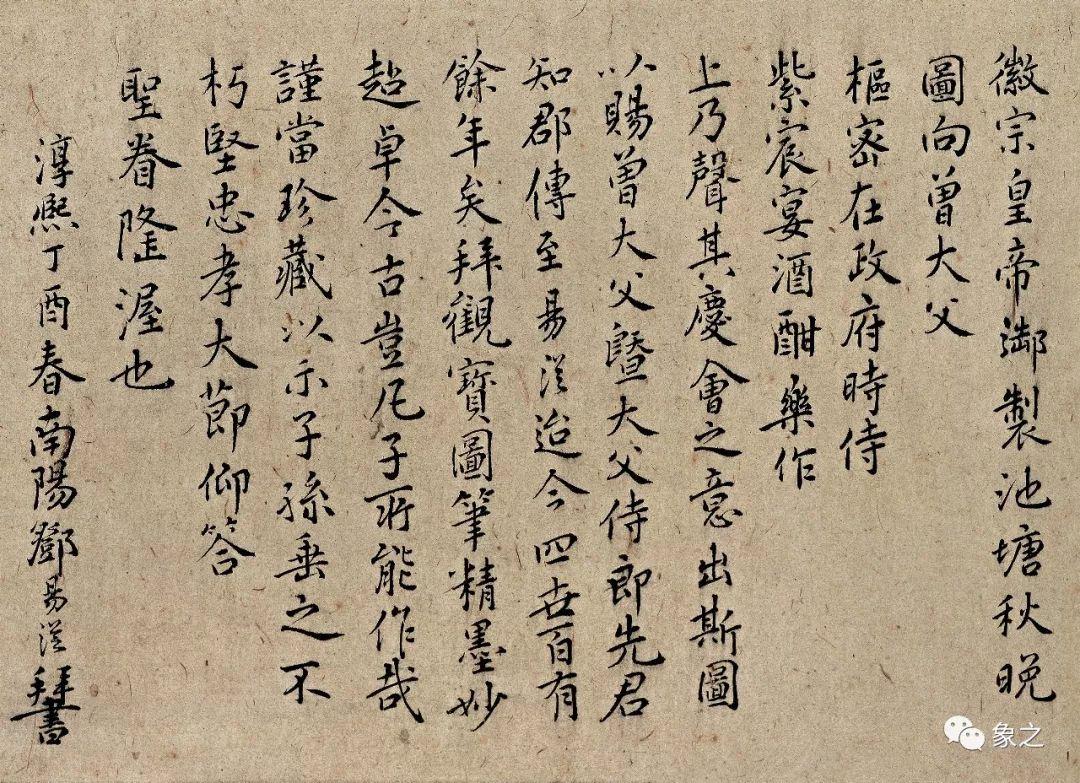 徽宗皇帝御製池塘秋晚
圖向曾大父
樞密在政府時侍
紫宸宴酒酣樂作
上乃聲其慶會之意出斯圖
以賜曾大父暨大父侍郎先君
知郡傳至易從迨今四世百有
餘年矣拜觀寶圖筆精墨妙
超卓今古豈凡子所能作哉
謹當珍藏以示子孫垂之不
朽堅忠孝大節仰答
聖眷隆渥也
淳熈丁酉春南陽鄧易從拜書
象之